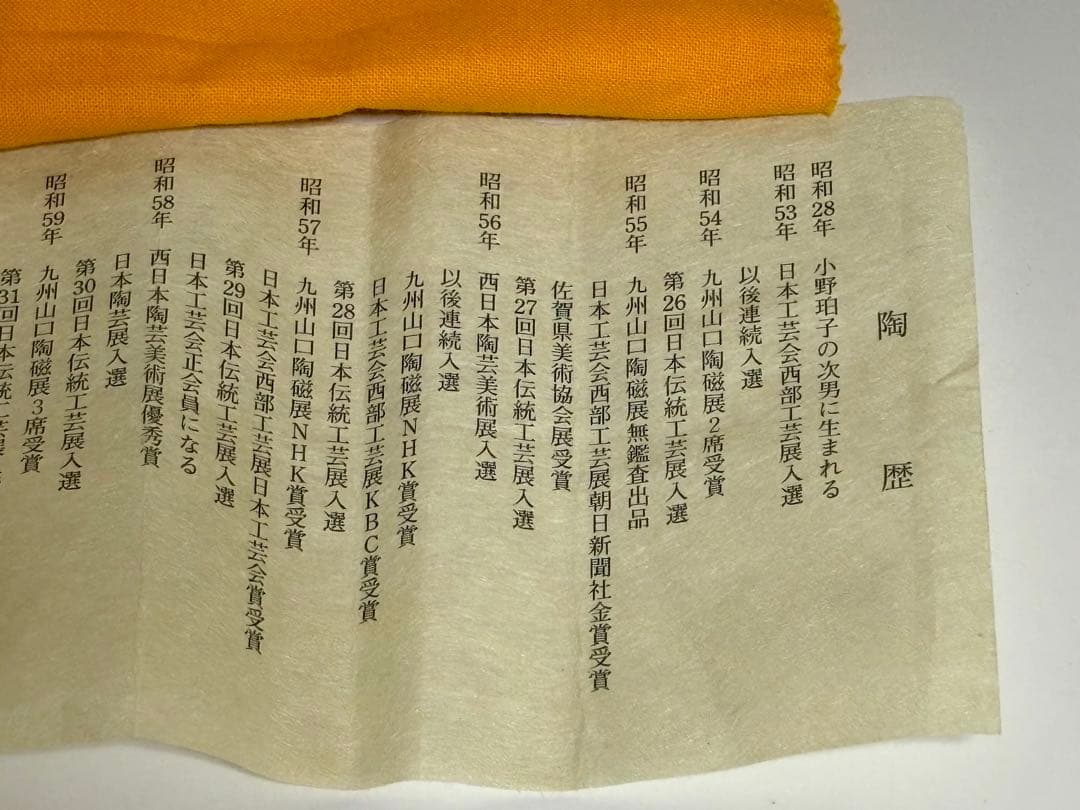 陶歴
昭和28年 小野珀子の次男に生まれる
昭和53年 日本工芸会西部工芸展入選
以後連続入選
昭和54年 九州山口陶磁展2席受賞
第26回日本伝統工芸展入選
昭和55年 九州山口陶磁展無鑑査出品
日本工芸会西部工芸展朝日新聞社金賞受賞
佐賀県美術協会展受賞
第27回日本伝統工芸展入選
昭和56年 西日本陶芸美術展入選
以後連続入選
九州山口陶磁展NHK賞受賞
日本工芸会西部工芸展KBC賞受賞
第28回日本伝統工芸展入選
昭和57年 九州山口陶磁展NHK賞受賞
日本工芸会西部工芸展日本工芸会賞受賞
第29回日本伝統工芸展入選
日本工芸会正会員になる
昭和58年 西日本陶芸美術展優秀賞
日本陶芸展入選
第30回日本伝統工芸展入選
昭和59年 九州山口陶磁展3席受賞
第31回日本伝統工芸展